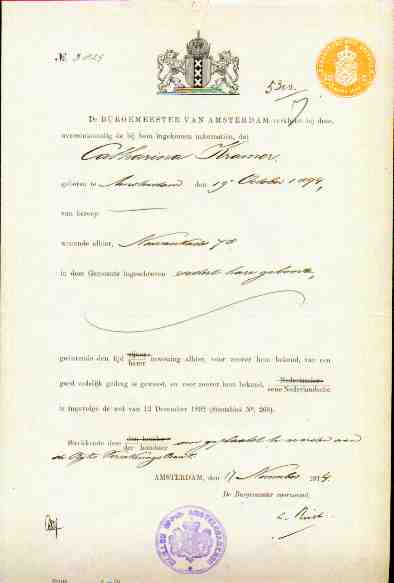 No. 3025
De BURGEMEESTER VAN AMSTERDAM verklaart bij deze,
overeenkomstig de bij hem ingekomen informatiën, dat
Catharina Kramer,
geboren te Amsterdam den 19e October 1894,
van beroep
wonende alhier,
in deze Gemeente ingeschreven sedert hare geboorte,
gedurende den tijd zijner
harer inwoning alhier, voor zoover hem bekend, van een
goed zedelijk gedrag is geweest, en voor zoover hem bekend, Nederlander
eene Nederlandsche
is ingevolge de wet van 12 December 1892 (Staatsblad No. 268).
Strekkende deze den houder
der houdster om geplaatst te worden aan
de Rijks
AMSTERDAM, den 17 November 1914.
De Burgemeester voornoemd,